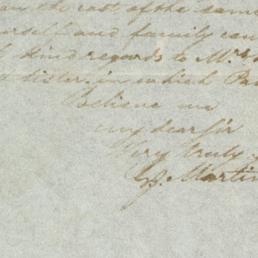 the cost of the same
and family can
kind regards to Mrs
sister in which
Believe me
my dear Sir
Very truly
Martin